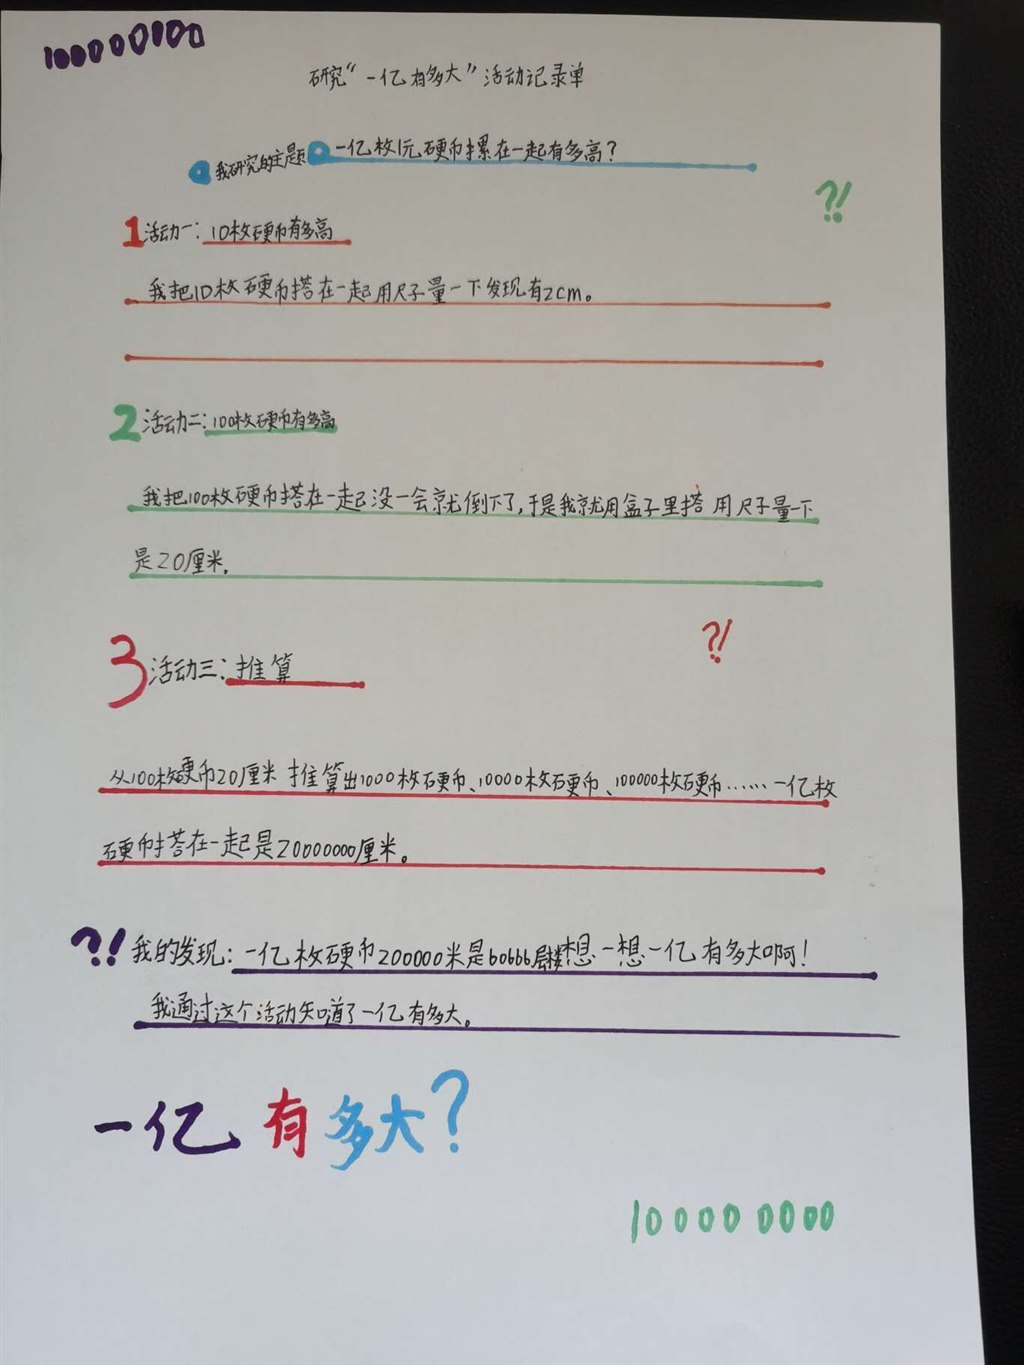 100000000
研究“一亿有多大”活动记录单
我研究的主题 一亿枚1元硬币摞在一起有多高?
?!
1 活动一:10枚硬币有多高
我把10枚硬币搭在一起用尺子量一下发现有2cm。
2 活动二:100枚硬币有多高
我把100枚硬币搭在一起没一会就倒下了,于是我就用盒子里搭 用尺子量一下
是20厘米.
?!
3 活动三:推算
从100枚硬币20厘米 推算出1000枚硬币、10000枚硬币、100000枚硬币……一亿枚
硬币搭在一起是20000000厘米。
?! 我的发现:一亿枚硬币200000米是60666层楼想一想一亿有多大啊!
我通过这个活动知道了一亿有多大。
一亿有多大?
100000000